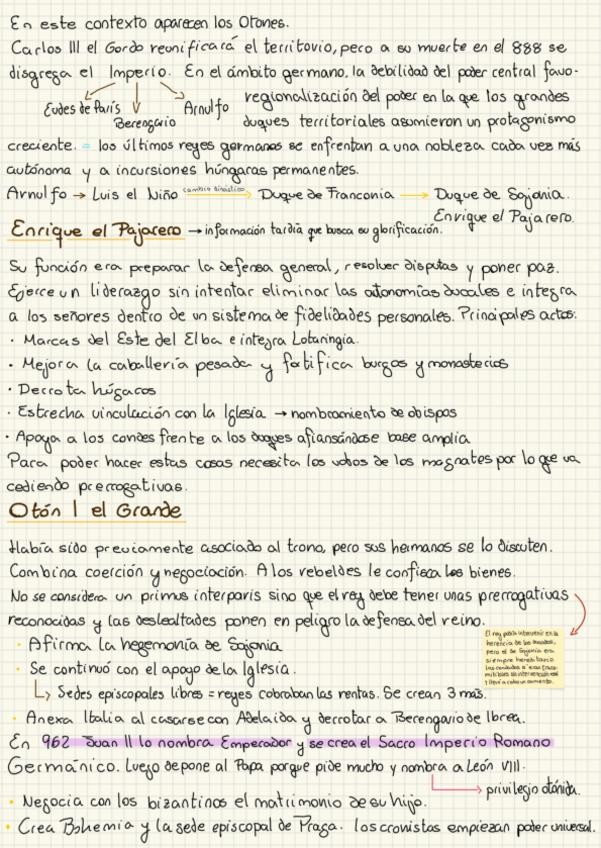 En este contexto aparecen los Otones.
Carlos III el Gordo reunificará el territorio, pero a su muerte en el 888 se
disgrega el Imperio. En el ámbito germano, la debilidad del poder central favo-
Eudes de París
Berengario
Arnulfo
regionalización del poder en la que los grandes
duques territoriales asumieron un protagonismo
creciente. = los últimos reyes germanos se enfrentan a una nobleza cada vez más
autónoma y a incursiones húngaras permanentes.
Arnulfo → Luis el Niño cambio dinástico → Duque de Franconia → Duque de Sajonia.
Enrique el Pajarero.
Enrique el Pajarero → información tardía que busca su glorificación.
Su función era preparar la defensa general, resolver disputas y poner paz.
Ejerce un liderazgo sin intentar eliminar las autonomías ducales e integra
a los señores dentro de un sistema de fidelidades personales. Principales actos:
· Marcas del Este del Elba e integra Lotaringia.
· Mejora la caballería pesada y fortifica burgos y monasterios
· Derrota húgaros
· Estrecha vinculación con la Iglesia → nombramiento de obispos
· Apoya a los condes frente a los duques afiansándose base amplia
Para poder hacer estas cosas necesita los votos de los magnates por lo que va
cediendo prerrogativas.
Otón I el Grande
Había sido previamente asociado al trono, pero sus hermanos se lo discuten.
Combina coerción y negociación. A los rebeldes le confisca los bienes.
No se considera un primus interparis sino que el rey debe tener unas prerrogativas
reconocidas y las deslealtades ponen en peligro la defensa del reino.
El rey podía intervenir en la
herencia de los ducados,
pero el de Sajonia era
siempre hereditario.
· Afirma la hegemonía de Sajonia
· Se continuó con el apoyo de la Iglesia.
↳ Sedes episcopales libres = reyes cobraban las rentas. Se crean 3 más.
· Anexa Italia al casarse con Adelaida y derrotar a Berengario de Ibrea.
En 962 Juan II lo nombra Emperador y se crea el Sacro Imperio Romano
Germánico. Luego depone al Papa porque pide mucho y nombra a León VIII.
→ privilegio otónida.
· Negocia con los bizantinos el matrimonio de su hijo.
· Crea Bohemia y la sede episcopal de Praga. los cronistas empiezan poder universal.